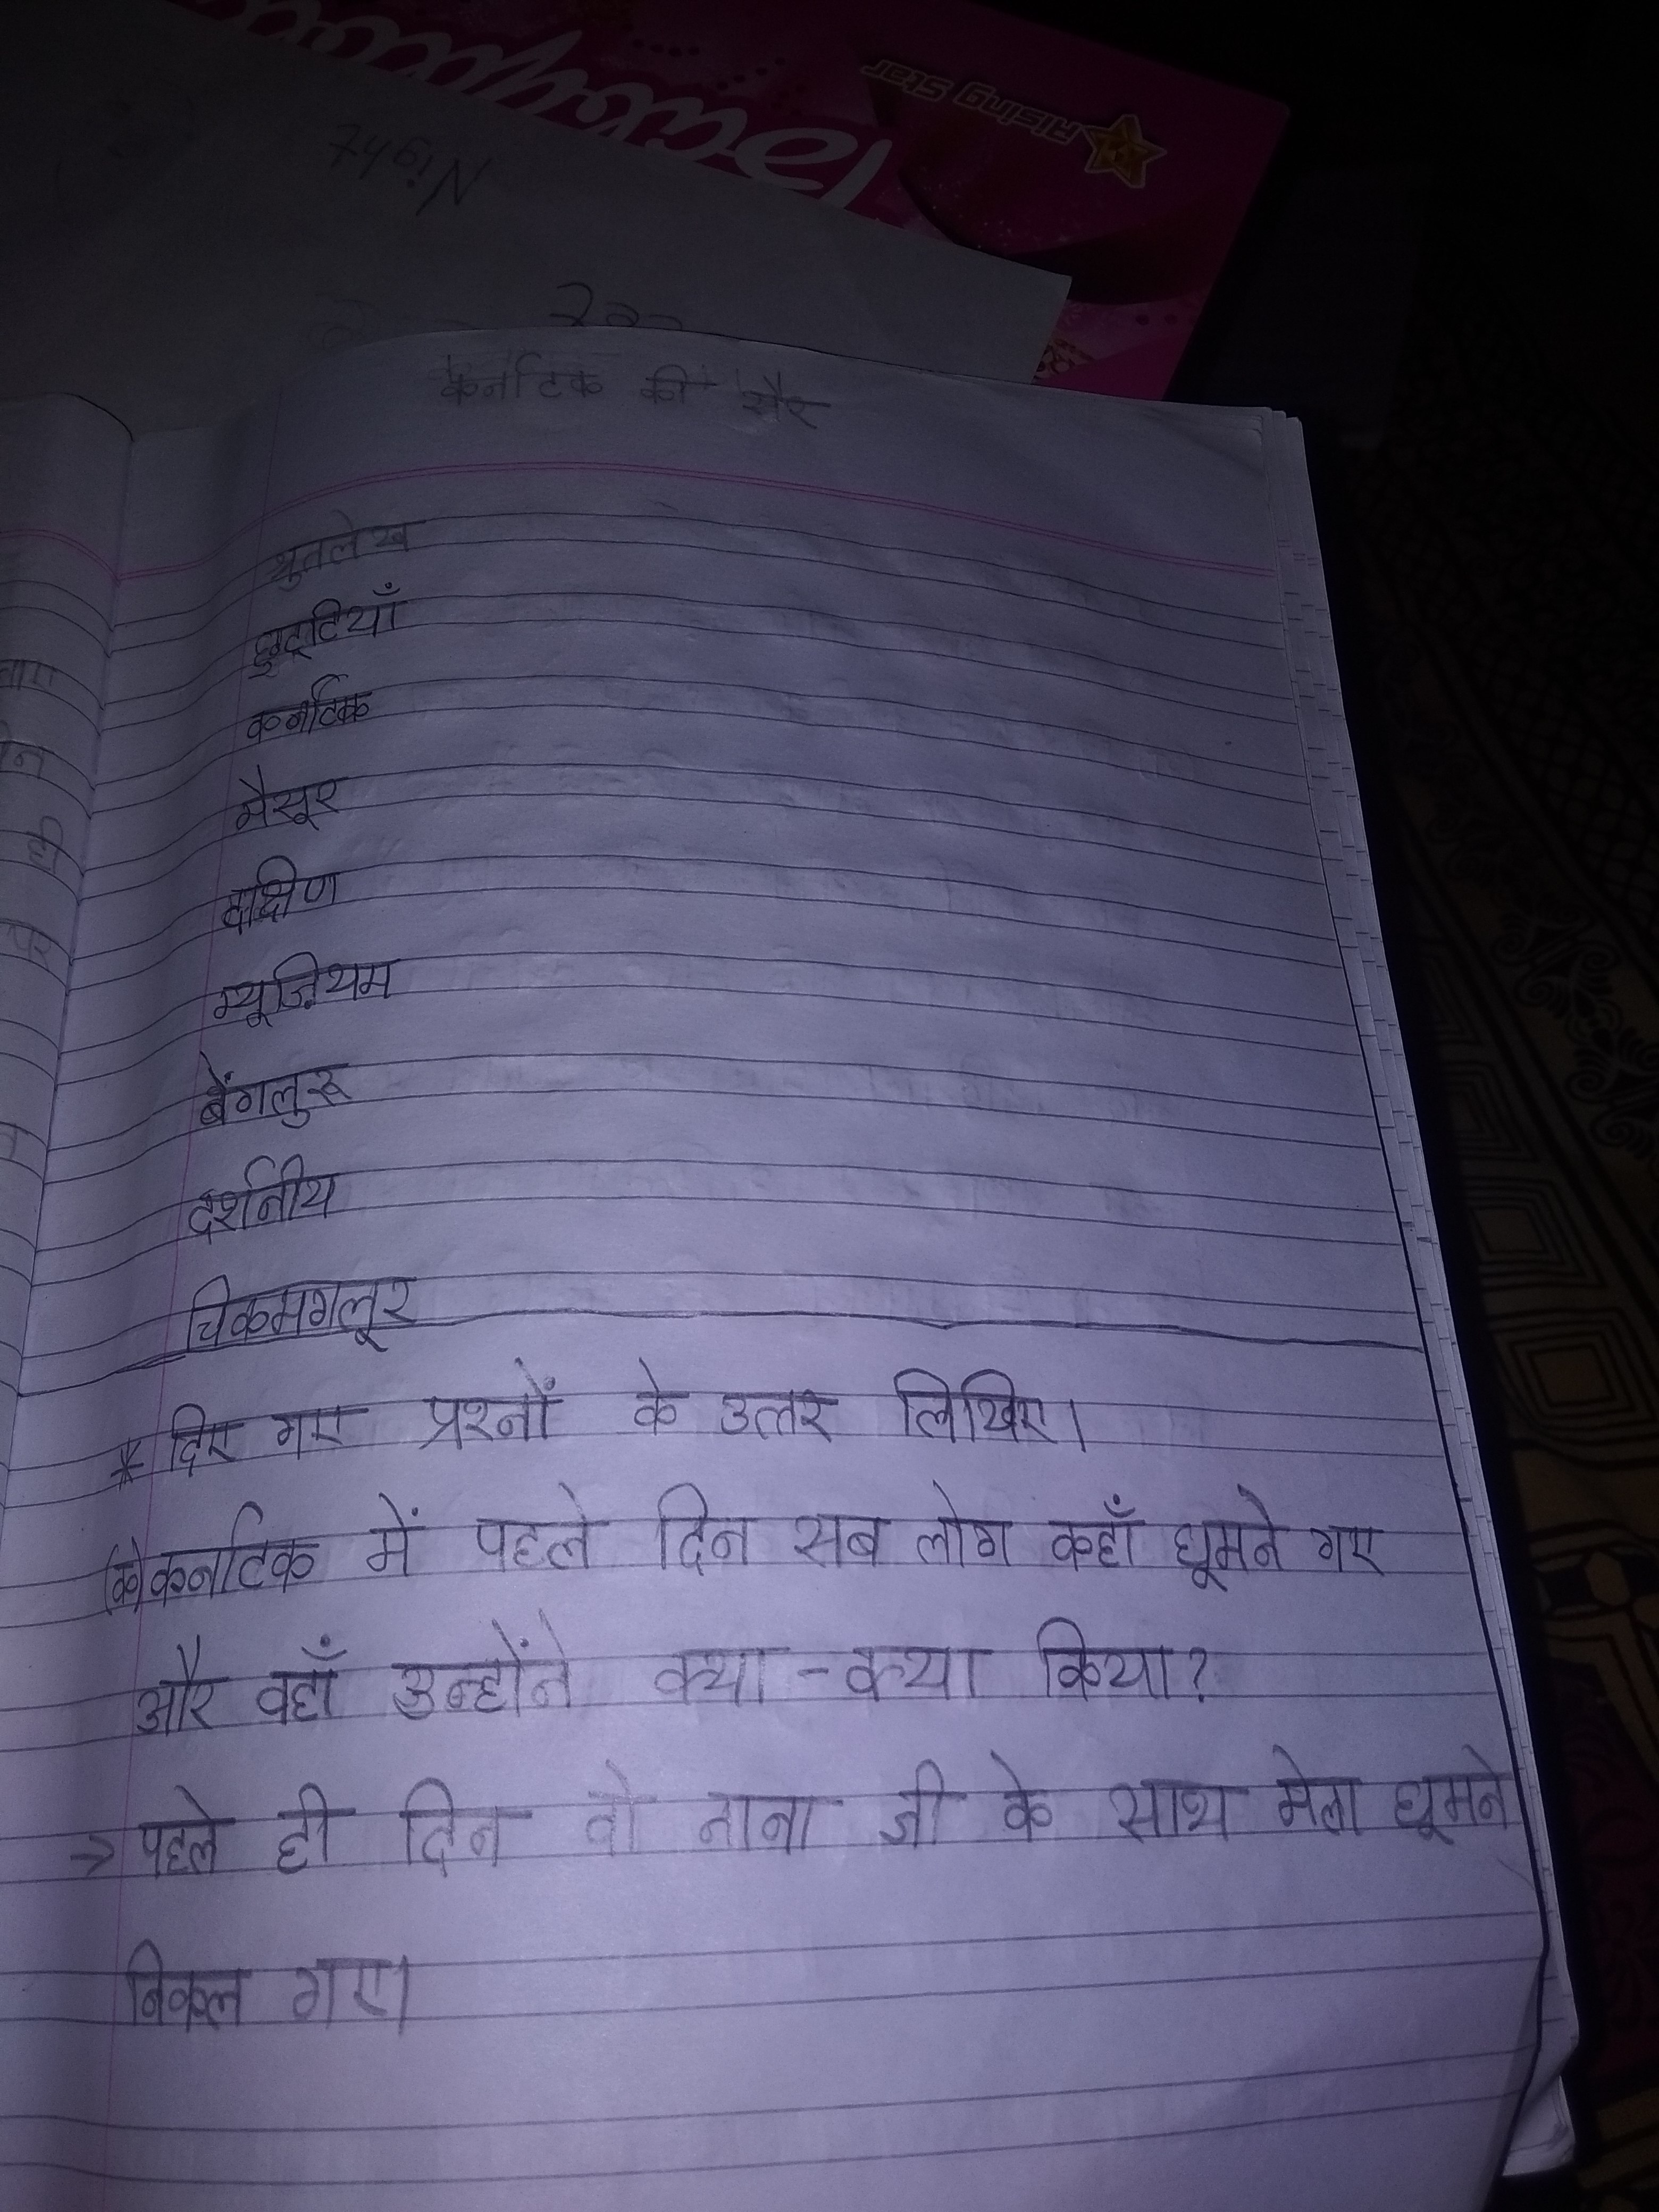 Rising Star
Night
कर्नाटक की सैर
श्रुतलेख
छुट्टियाँ
कर्नाटक
मैसूर
दक्षिण
म्यूज़ियम
बेंगलुरू
दर्शनीय
चिकमगलूर
* दिए गए प्रश्नों के उत्तर लिखिए।
(क) कर्नाटक में पहले दिन सब लोग कहाँ घूमने गए
और वहाँ उन्होंने क्या-क्या किया?
→ पहले ही दिन वो नाना जी के साथ मेला घूमने
निकल गए।